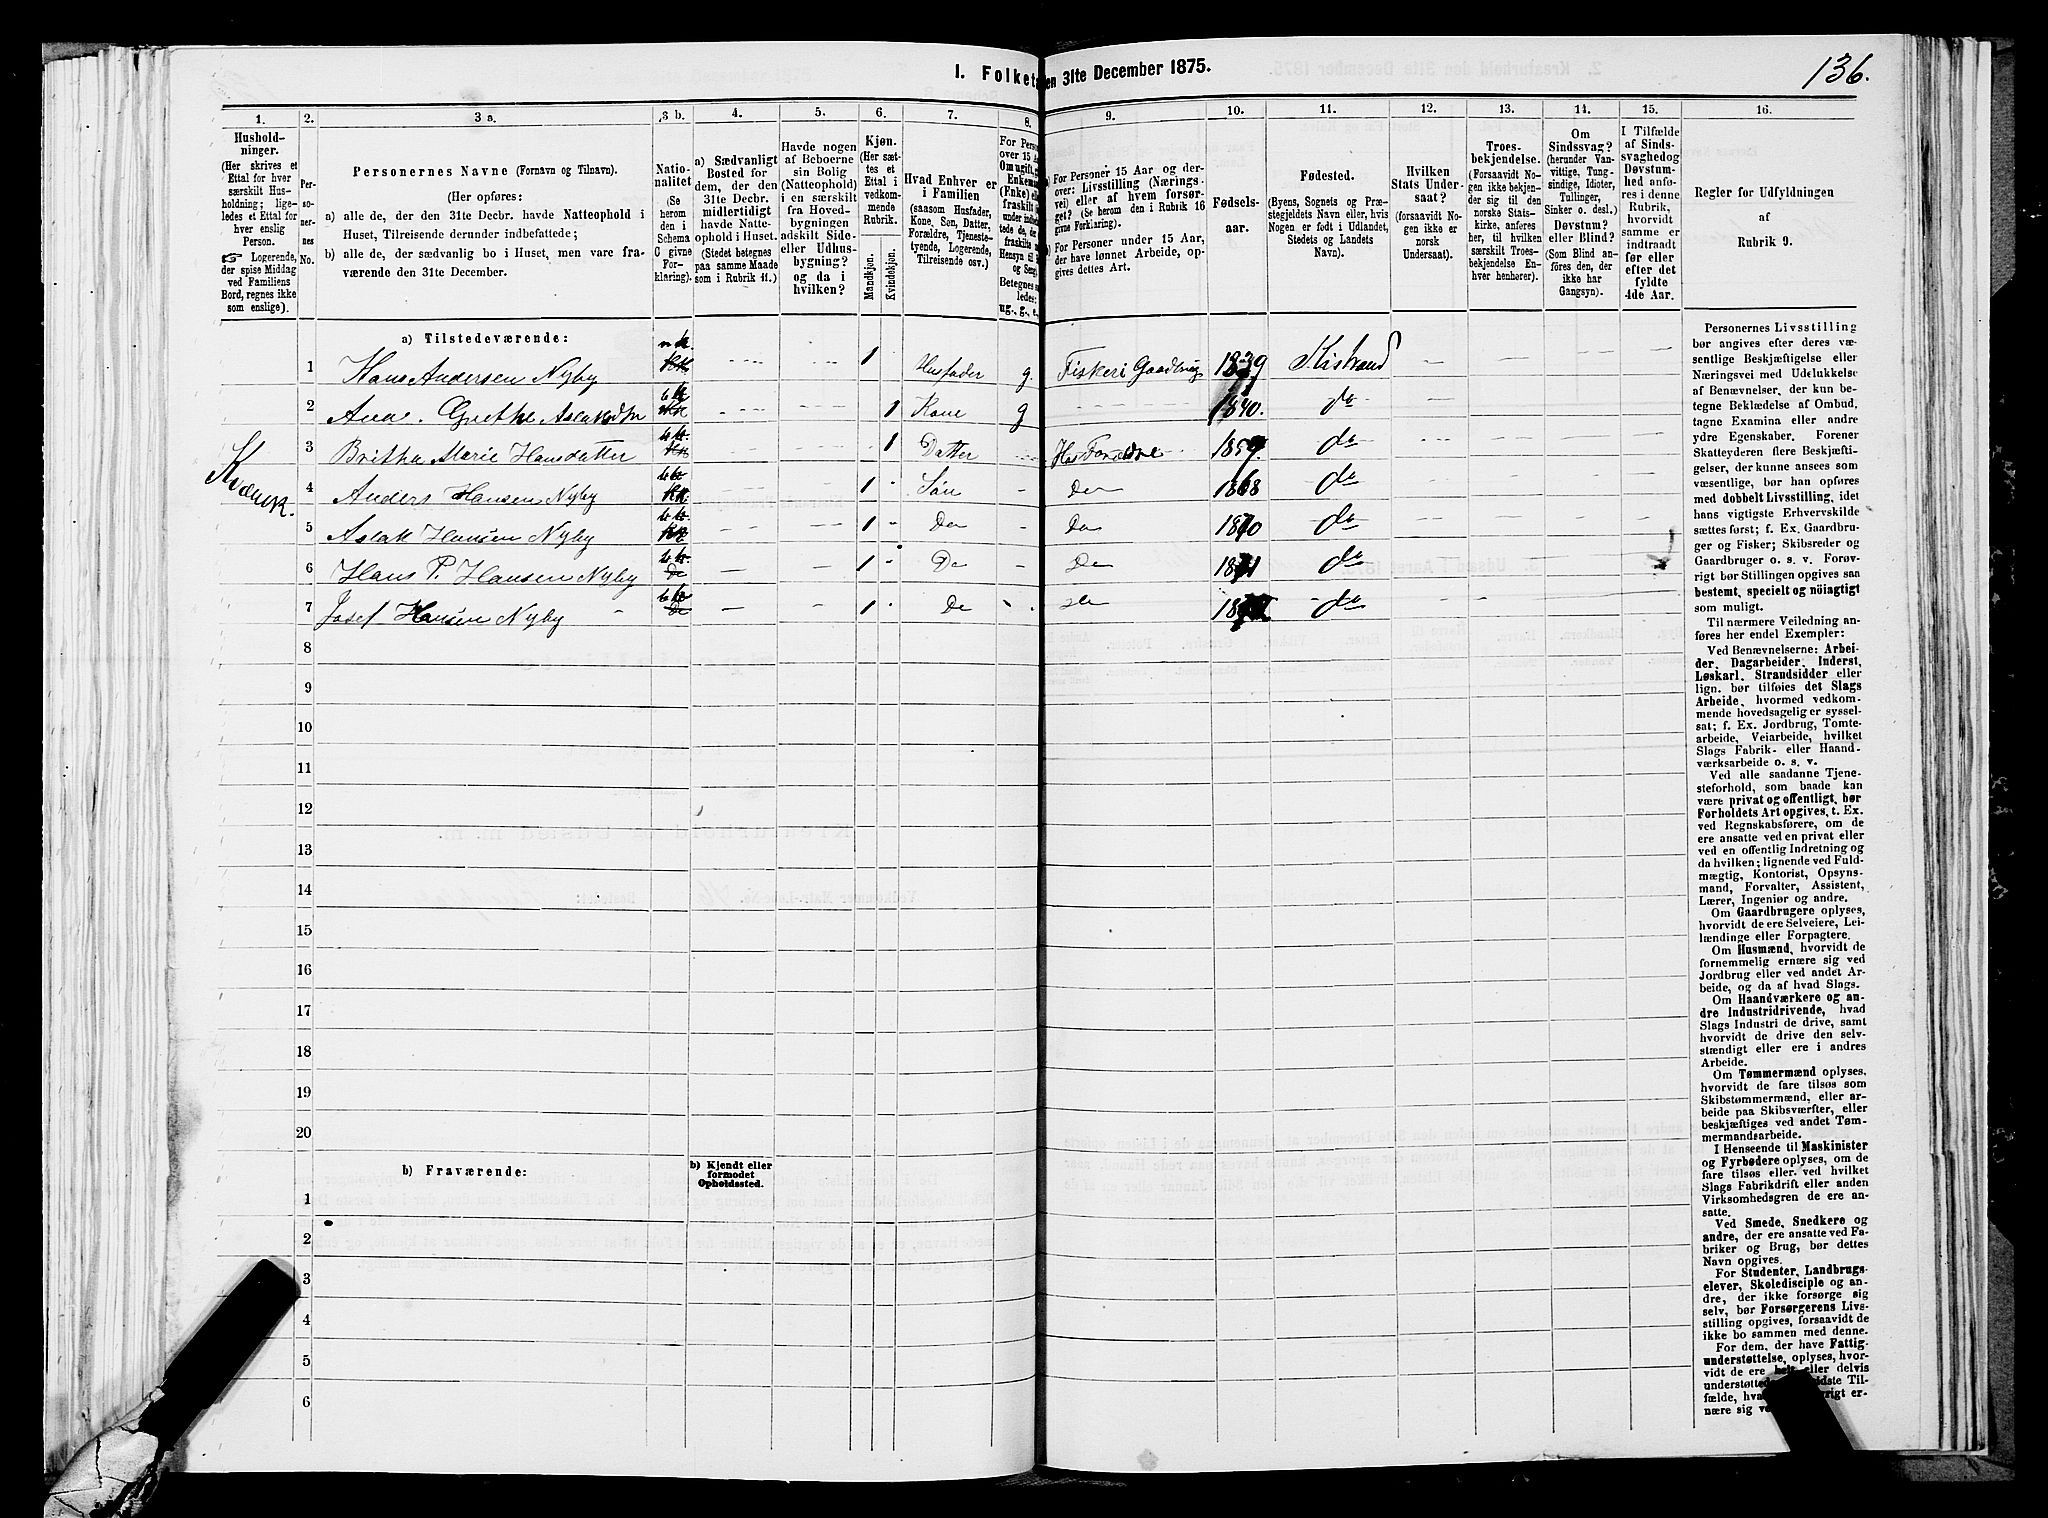 136.
I. Folketa
en 31te December 1875.
1.
Hushold-
ninger.
(Her skrives et
Ettal for hver
særskilt Hus-
holdning; lige-
ledes et Ettal for
hver enslig
Person.
☞ Logerende,
der spise Middag
ved Familiens
Bord, regnes ikke
som enslige).
2.
Per-
so-
ner-
nes
No.
3 a.
Personernes Navne (Fornavn og Tilnavn).
(Her opføres:
a) alle de, der den 31te Decbr. havde Natteophold i
Huset, Tilreisende derunder indbefattede;
b) alle de, der sædvanlig bo i Huset, men vare fra-
værende den 31te December.
3 b.
Natio-
nalitet
(Se
herom
den i
Schema
C givne
For-
klaring).
4.
a) Sædvanligt
Bosted for
dem, der den
31te Decbr.
midlertidigt
havde Natte-
ophold i Huset.
(Stedet betegnes
paa samme Maade
som i Rubrik 11.)
5.
Havde nogen
af Beboerne
sin Bolig
(Natteophold)
i en særskilt
fra Hoved-
bygningen
adskilt Side-
eller Udhus-
bygning?
og da i
hvilken?
6.
Kjøn.
(Her sæt-
tes et
Ettal i
vedkom-
mende
Rubrik.
Mandkjøn.
Kvindekjøn.
7.
Hvad Enhver er
i Familien
(saasom Husfader,
Kone, Søn, Datter,
Forældre, Tjeneste-
tyende, Logerende,
Tilreisende osv.)
8.
For Person
over 15 Aa
Om ugift, g
Enkema
(Enke) ell
fraskilt
under indbe
tede de, d
fraskilte
Hensyn til
og Seng
Betegnes s
ledes:
ug., g., e.,
9.
a) For Personer 15 Aar og der-
over: Livsstilling (Nærings-
vei) eller af hvem forsør-
get? (Se herom i Rubrik 16
givne Forklaring.)
b) For Personer under 15 Aar,
der have lønnet Arbeide, op-
gives dettes Art.
10.
Fødsels-
aar.
11.
Fødested.
(Byens, Sognets og Præ-
stegjeldets Navn eller, hvis
Nogen er født i Udlandet,
Stedets og Landets
Navn).
12.
Hvilken
Stats Under-
saat?
(forsaavidt No-
gen ikke er
norsk
Undersaat).
13.
Troes-
bekjendelse.
(Forsaavidt No-
gen ikke bekjen-
der sig til den
norske Stats-
kirke, anføres
her, til hvilken
særskilt Troes-
bekjendelse En-
hver henhører).
14.
Om
Sindssvag?
(herunder Van-
vittige, Tung-
sindige, Idioter,
Tullinger,
Sinker o. desl.)
Døvstum?
eller Blind?
(Som Blind an-
føres den, der
ikke har
Gangsyn).
15.
I Tilfælde
af Sinds-
svaghed og
Døvstum-
hed anfø-
res i denne
Rubrik,
hvorvidt
samme er
indtraadt
før eller
efter det
fyldte
4de Aar.
16.
Regler for Udfyldningen
af
Rubrik 9.
a) Tilstedeværende:
Kvænsk.
1 Hans Andersen Nyby 1 Husfader g. Fisker i Gaardbrug 1839 Kistrand
2 Ane. Grethe Aslaksdtr 1 Kone g 1840. do
3 Britha Marie Hansdatter 1 Datter Hos Forældre 1859. do
4 Anders Hansen Nyby 1 Søn Do 1868 do
5 Aslak Hansen Nyby 1 Do Do 1870 do
6 Hans P. Hansen Nyby 1 Do Do 1871 do
7 Josef Hansen Nyby 1 Do do do
8
9
10
11
12
13
14
15
16
17
18
19
20
b) Fraværende:
b) Kjendt eller
formodet
Opholdssted.
1
2
3
4
5
6
Personernes Livsstilling
bør angives efter deres væ-
sentlige Beskjæftigelse eller
Næringsvei med Udelukkelse
af Benævnelser, der kun be-
tegne Beklædelse af Ombud,
tagne Examina eller andre
ydre Egenskaber. Forener
Skatteyderen flere Beskjæfti-
gelser, der kunne ansees som
væsentlige, bør han opføres
med dobbelt Livsstilling, idet
hans vigtigste Erhvervskilde
sættes først; f. Ex. Gaardbru-
ger og Fisker; Skibsreder og
Gaardbruger o. s. v. Forøv-
rigt bør Stillingen opgives saa
bestemt, specielt og nøiagtigt
som muligt.
Til nærmere Veiledning an-
føres her endel Exempler:
Ved Benævnelserne: Arbei-
der, Dagarbeider, Inderst,
Løskarl, Strandsidder eller
lign. bør tilføies det Slags
Arbeide, hvormed vedkom-
mende hovedsagelig er syssel-
sat; f. Ex. Jordbrug, Tomte-
arbeide, Veiarbeide, hvilket
Slags Fabrik- eller Haand-
værksarbeide o. s. v.
Ved alle saadanne Tjene-
steforhold, som baade kan
være privat og offentligt, bør
Forholdets Art opgives, t. Ex.
ved Regnskabsførere, om de
ere ansatte ved en privat eller
ved en offentlig Indretning og
da hvilken; lignende ved Fuld-
mægtig, Kontorist, Opsyns-
mand, Forvalter, Assistent,
Lærer, Ingeniør og andre.
Om Gaardbrugere oplyses,
hvorvidt de ere Selveiere, Lei-
lændinge eller Forpagtere.
Om Husmænd, hvorvidt de
fornemmelig ernære sig ved
Jordbrug eller ved andet Ar-
beide, og da af hvad Slags.
Om Haandværkere og an-
dre Industridrivende, hvad
Slags Industri de drive, samt
hvorvidt de drive den selv-
stændigt eller ere i andres
Arbeide.
Om Tømmermænd oplyses,
hvorvidt de fare tilsøs som
Skibstømmermænd, eller ar-
beide paa Skibsværfter, eller
beskjæftiges ved andet Tøm-
mermandsarbeide.
I Henseende til Maskinister
og Fyrbødere oplyses, om de
fare tilsøs eller ved hvilket
Slags Fabrikdrift eller anden
Virksomhedsgren de ere an-
satte.
Ved Smede, Snedkere og
andre, der ere ansatte ved Fa-
briker og Brug, bør dettes
Navn opgives.
For Studenter, Landbrugs-
elever, Skoledisciple og an-
dre, der ikke forsørge sig
selv, bør Forsørgerens Livs-
stilling opgives, forsaavidt de
ikke bo sammen med denne.
For dem, der have Fattig-
understøttelse, oplyses, hvor-
vidt de ere helt eller delvis